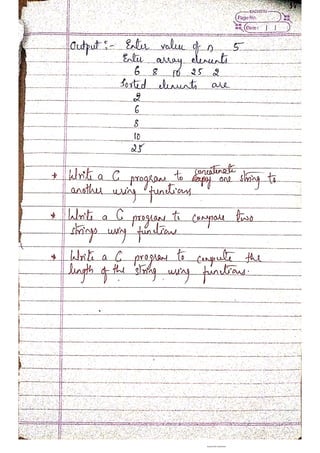 Page No.
Date: / /
Output :- Enter value of n 5
Enter array elements
6 8 10 25 2
Sorted elements are
2
6
8
10
25
* Write a C program to concatenate one string to
another using functions.
* Write a C program to compare two
strings using functions
* Write a C program to compute the
length of the string using functions.